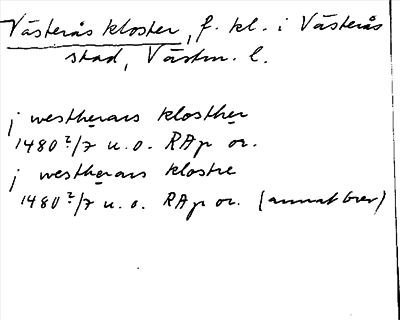 Västerås kloster, f. kl. i Västerås
stad, Västm. l.
j westherars klosther
1480 2/7 u. o. RAp or.
j westherars klostre
1480 2/7 u. o. RAp or. (annat brev)